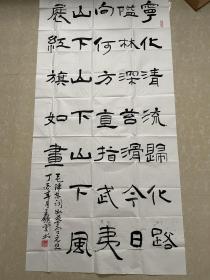 寧化清流歸化路
隘林深苔滑今日
向何方直指武夷
山下山下山下風
展紅旗如畫
毛澤東詞如夢令元旦
丁亥年